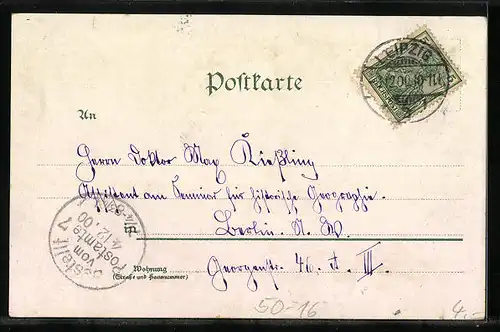 LEIPZIG
12.00.10-11
1
Postkarte
An
Herrn Doktor Max Kießling
Assistent am Seminar für historische Geographie.
in
Berlin. N. W.
Georgenstr. 46. A III.
Wohnung
(Straße und Hausnummer)
Bestellt
vom
Postamte 7
4.12.00
50-16
4.-